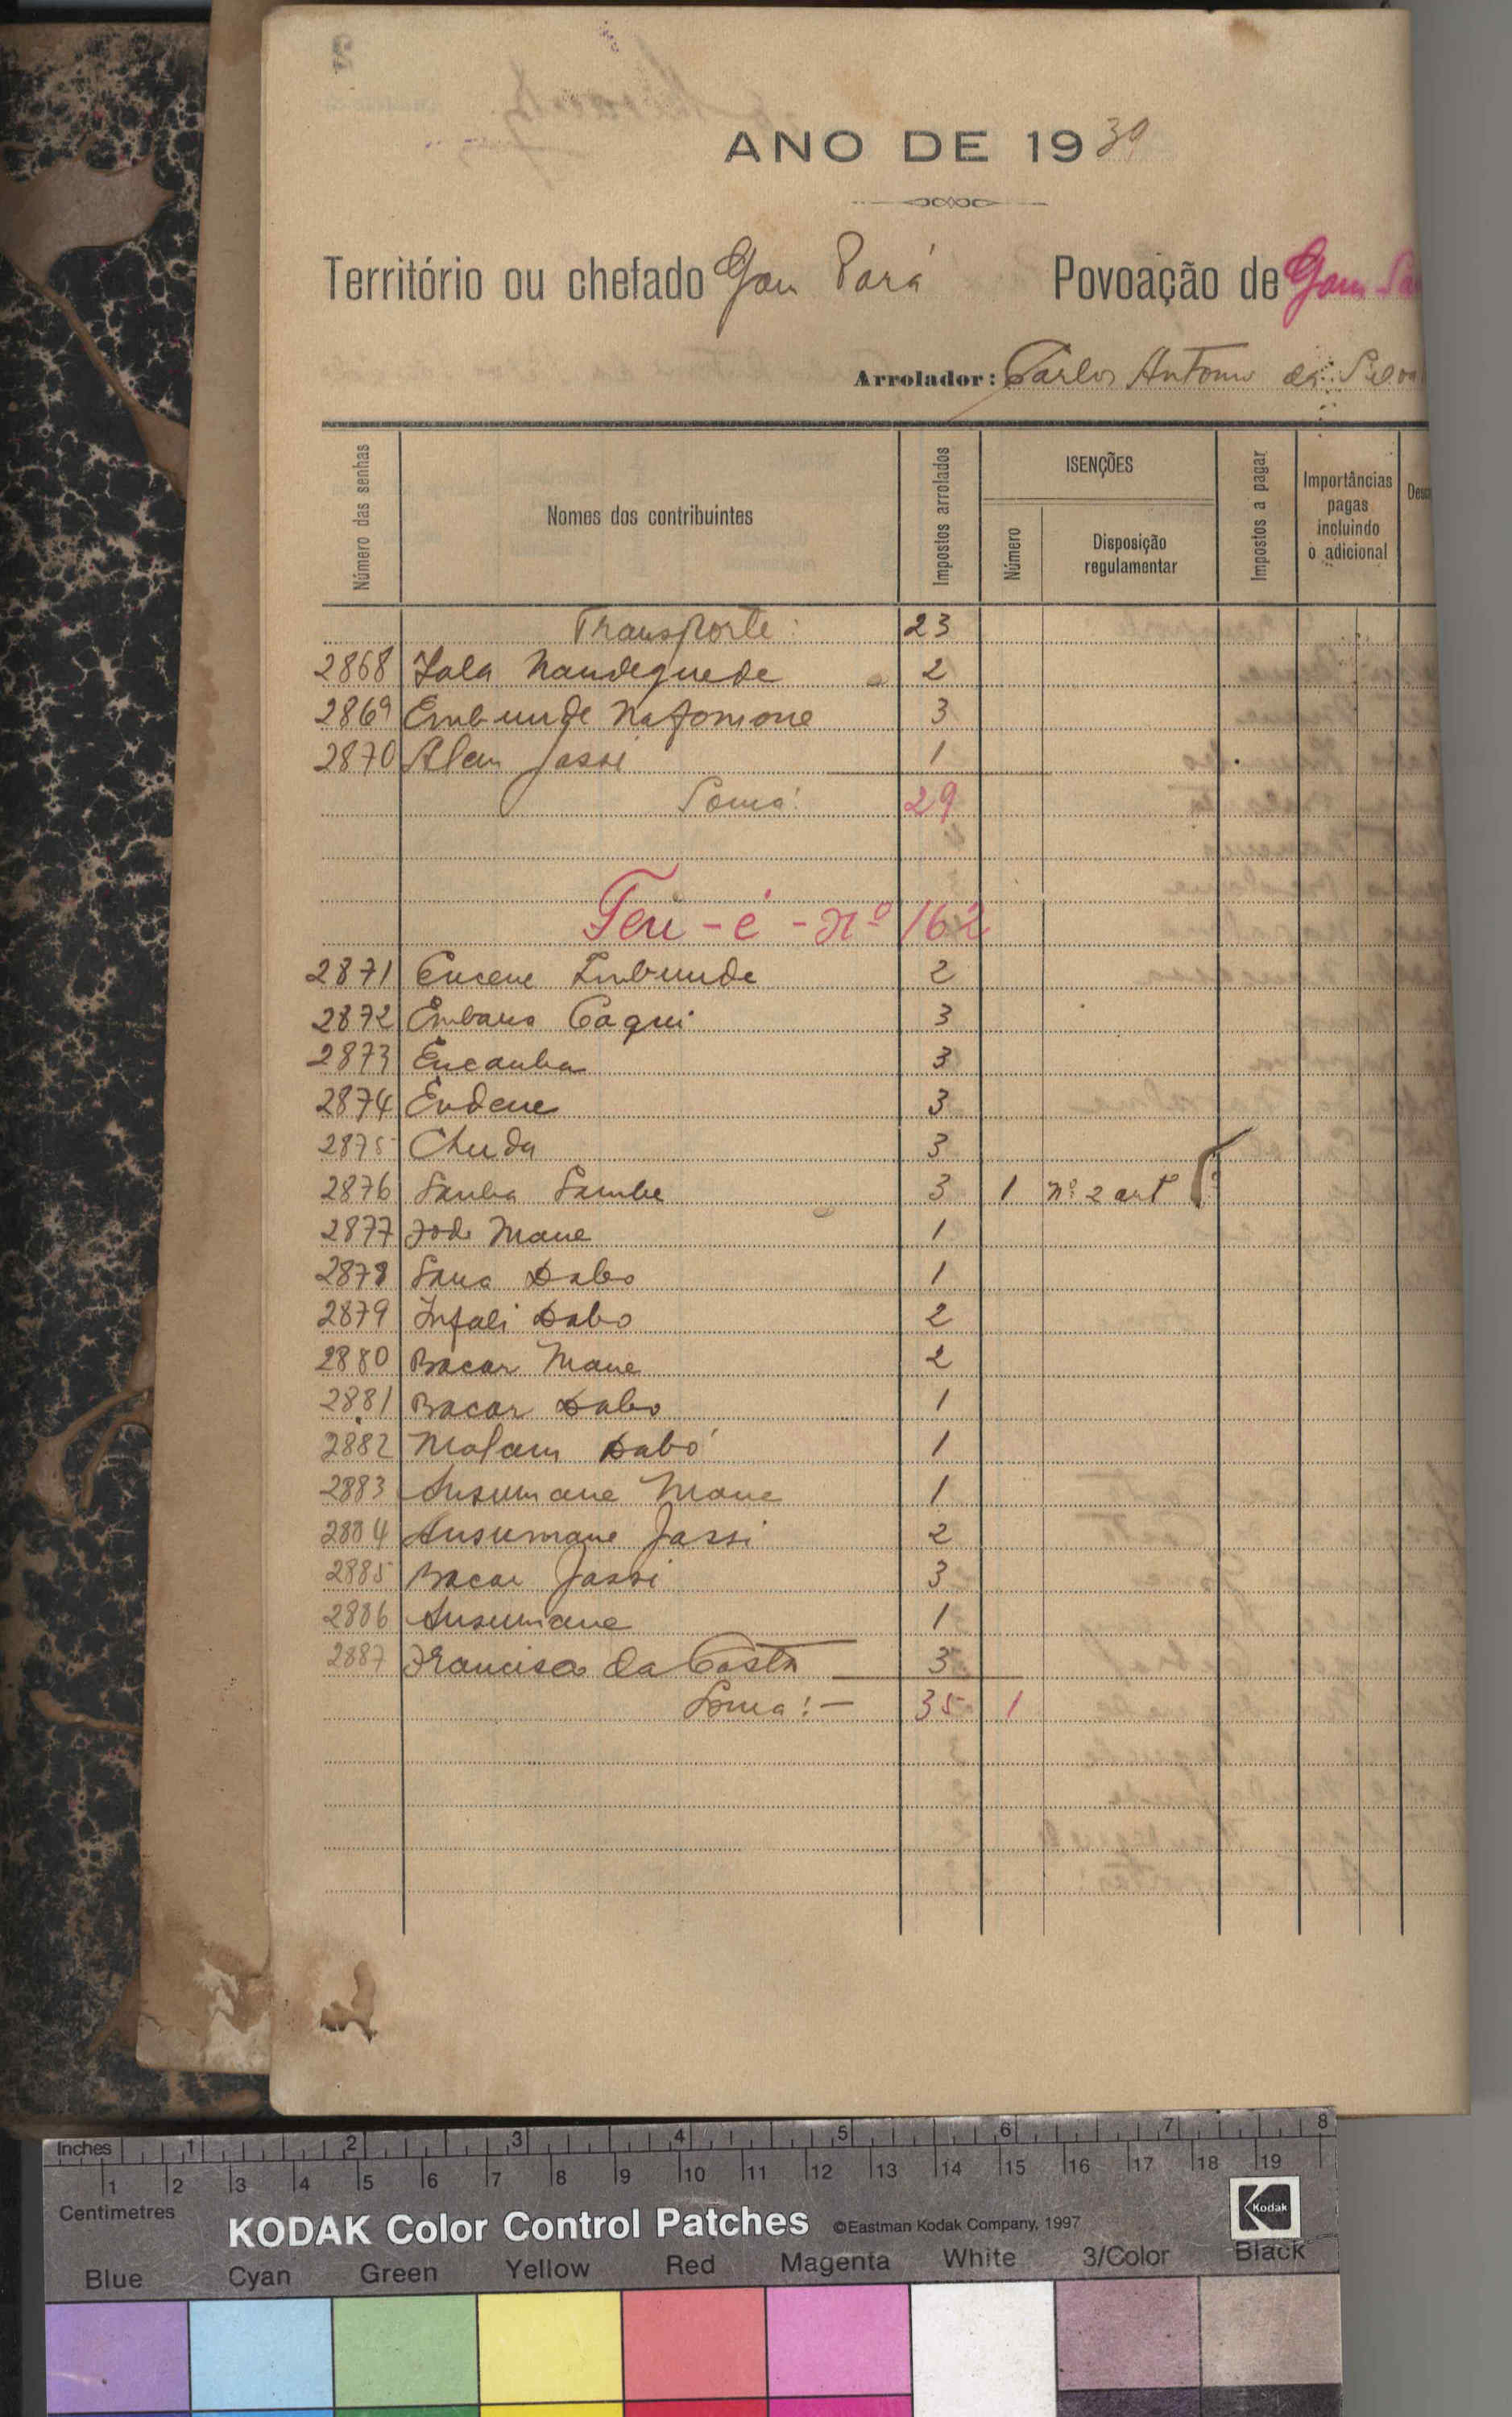 ANO DE 1930
Território ou chefado Gan Pará Povoação de Gam
Arrolador: Carlos Antonio da Silva
Número das senhas
Nomes dos contribuintes
Impostos arrolados
ISENÇÕES
Número
Disposição regulamentar
Impostos a pagar
Importâncias pagas incluindo o adicional
Transporte: 23
2868 Lala Nandeguede 2
2869 Embunde Nafomone 3
2870 Alan Jassi 1
Soma: 29
Feri - é - nº 162
2871 Encene Imbunde 2
2872 Embana Caqui 3
2873 Encanha 3
2874 Endene 3
2875 Chuda 3
2876 Sanba Sambe 3 1 nº 2 art
2877 Jode Mane 1
2878 Sana Dabo 1
2879 Infali Dabo 2
2880 Bacar Mane 2
2881 Bacar Dabo 1
2882 Malam Dabó 1
2883 Ansumane Mane 1
2884 Ansumane Jassi 2
2885 Bacar Jassi 3
2886 Ansumane 1
2887 Francisco da Costa 3
Soma: - 35 1
Inches 1 2 3 4 5 6 7 8
1 2 3 4 5 6 7 8 9 10 11 12 13 14 15 16 17 18 19
Centimetres
KODAK Color Control Patches ©Eastman Kodak Company, 1997 Kodak
Blue Cyan Green Yellow Red Magenta White 3/Color Black